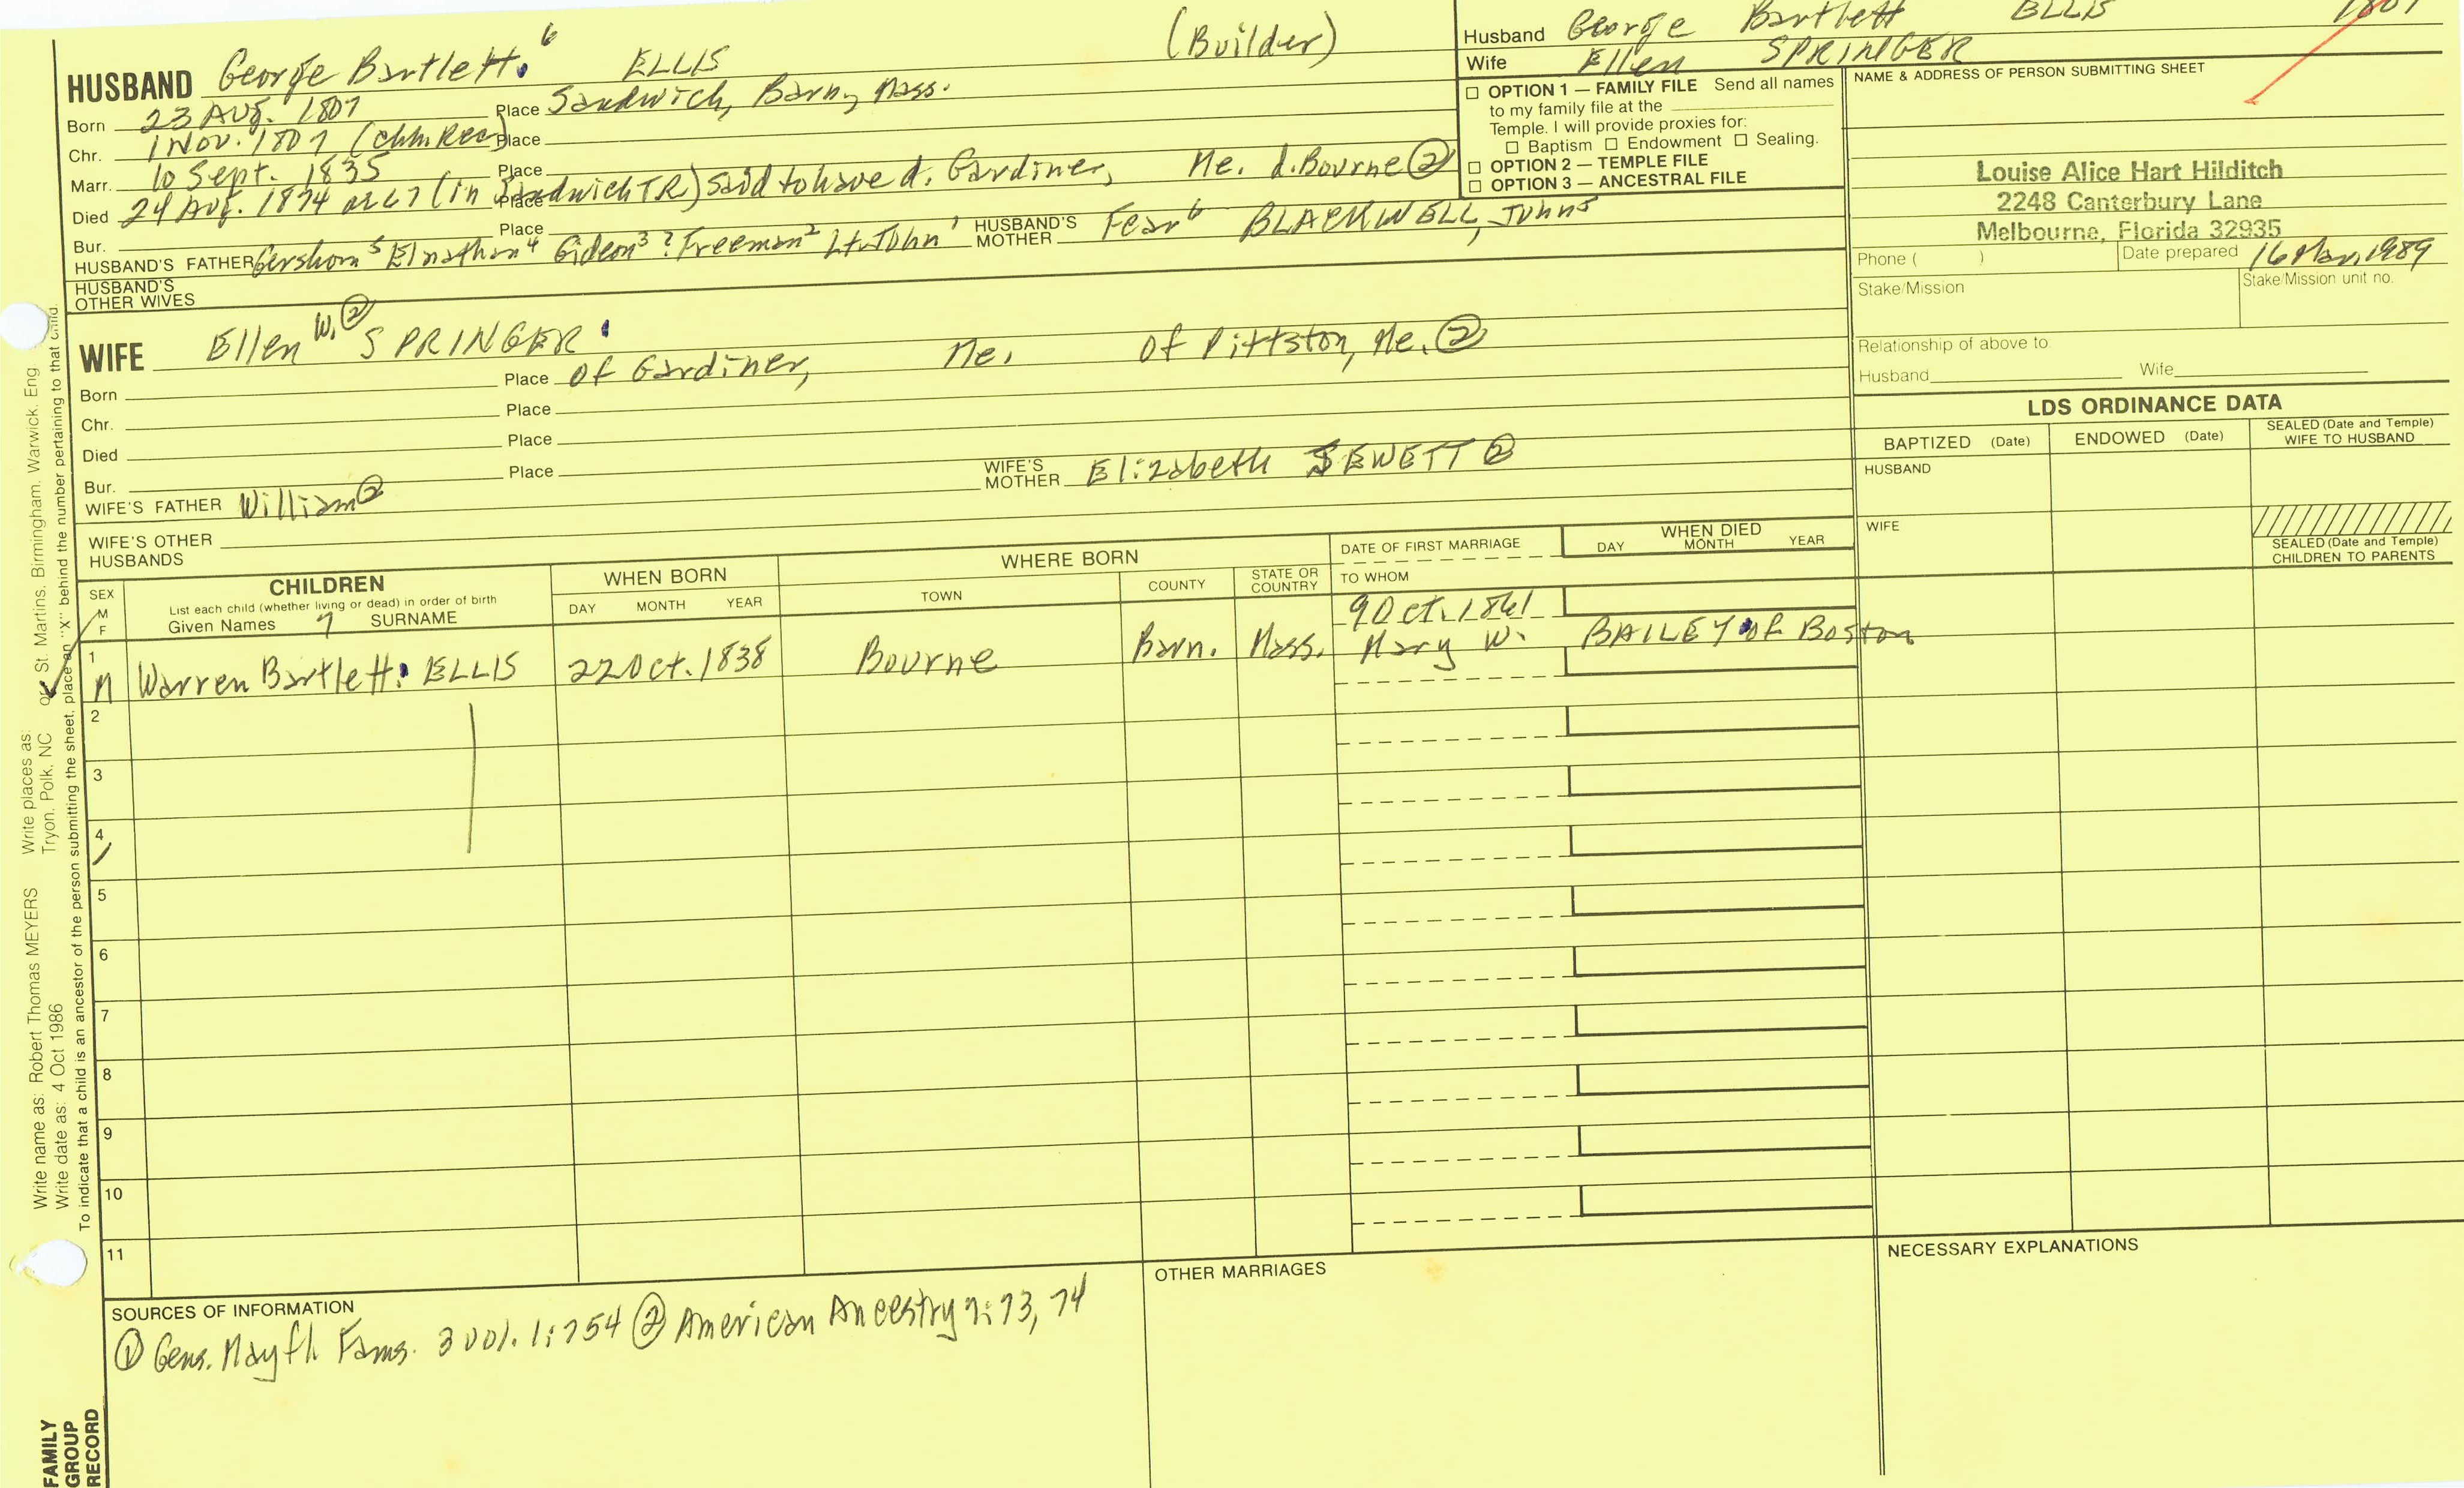 HUSBAND George Bartlett 6 ELLIS (Builder)
Born 23 Aug. 1807 Place Sandwich, Barn, Mass.
Chr. 1 Nov. 1807 (Chh. Rec) Place
Marr. 10 Sept. 1835 Place
Died 24 Aug. 1874 (in Sandwich TR) said to have d. Gardiner, Me. d. Bourne ② Place
Bur. Place
HUSBAND'S FATHER Gershom 5 Elnathan 4 Gideon 3 ? Freeman 2 Lt. John 1 HUSBAND'S MOTHER Fear 6 BLACKWELL, John 5
HUSBAND'S OTHER WIVES
WIFE Ellen W. ② SPRINGER
Born Place of Gardiner, Me. of Pittston, Me. ②
Chr. Place
Died Place
Bur. Place
WIFE'S FATHER William ② WIFE'S MOTHER Elizabeth SEWETT ②
WIFE'S OTHER HUSBANDS
Husband George Bartlett ELLIS 1807
Wife Ellen SPRINGER
☐ OPTION 1 — FAMILY FILE Send all names
to my family file at the
Temple. I will provide proxies for:
☐ Baptism ☐ Endowment ☐ Sealing.
☐ OPTION 2 — TEMPLE FILE
☐ OPTION 3 — ANCESTRAL FILE
NAME & ADDRESS OF PERSON SUBMITTING SHEET
Louise Alice Hart Hilditch
2248 Canterbury Lane
Melbourne, Florida 32935
Phone ( ) Date prepared 16 Mar, 1989
Stake/Mission Stake/Mission unit no.
Relationship of above to
Husband Wife
LDS ORDINANCE DATA
BAPTIZED (Date) ENDOWED (Date) SEALED (Date and Temple) WIFE TO HUSBAND
HUSBAND
WIFE
SEALED (Date and Temple) CHILDREN TO PARENTS
SEX M F
CHILDREN
List each child (whether living or dead) in order of birth
Given Names 7 SURNAME
WHEN BORN
DAY MONTH YEAR
WHERE BORN
TOWN COUNTY STATE OR COUNTRY
DATE OF FIRST MARRIAGE
TO WHOM
WHEN DIED
DAY MONTH YEAR
9 Oct. 1861
1 M Warren Bartlett ELLIS 22 Oct. 1838 Bourne Barn. Mass. Mary W. BAILEY of Boston
2
3
4
5
6
7
8
9
10
11
SOURCES OF INFORMATION
① Gens. Mayfl Fams. 3 vol. 1:754 ② American Ancestry 7:73, 74
OTHER MARRIAGES
NECESSARY EXPLANATIONS
Write name as: Robert Thomas MEYERS Write places as:
Write date as: 4 Oct 1986 Tryon, Polk, NC or St. Martins, Birmingham, Warwick, Eng
To indicate that a child is an ancestor of the person submitting the sheet, place an "X" behind the number pertaining to that child.
FAMILY
GROUP
RECORD